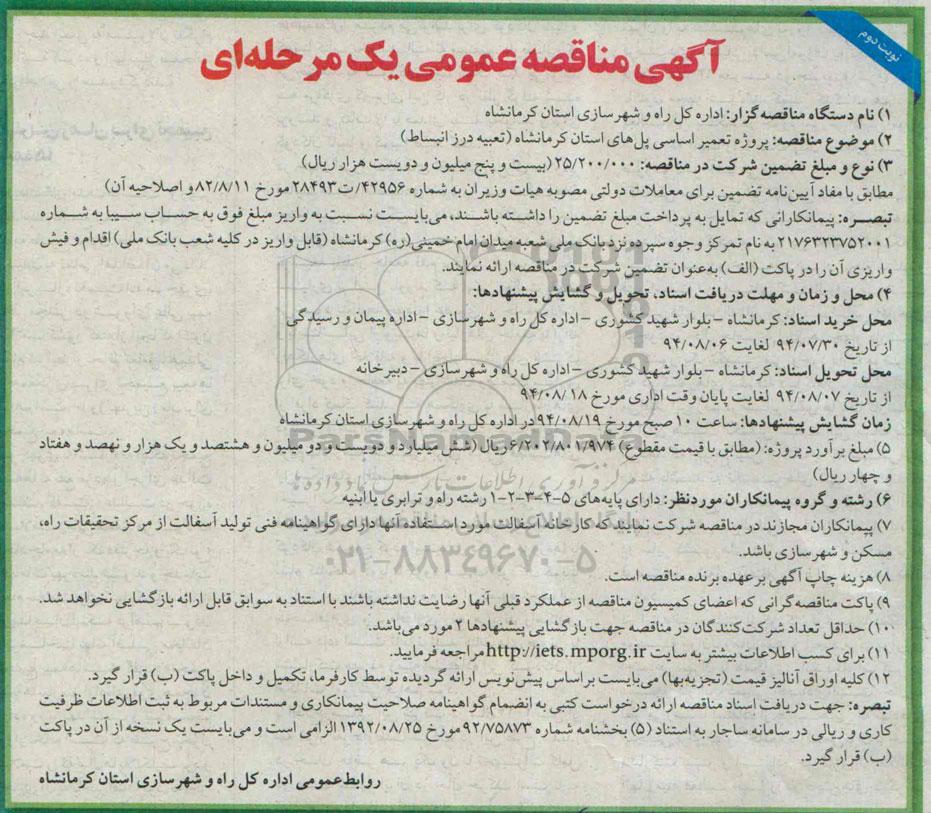 نوبت دوم
آگهی مناقصه عمومی یک مرحله‌ای
۱) نام دستگاه مناقصه‌گزار: اداره کل راه و شهرسازی استان کرمانشاه
۲) موضوع مناقصه: پروژه تعمیر اساسی پل‌های استان کرمانشاه (تعبیه درز انبساط)
۳) نوع و مبلغ تضمین شرکت در مناقصه: ۲۵/۲۰۰/۰۰۰ (بیست و پنج میلیون و دویست هزار ریال)
مطابق با مفاد آیین‌نامه تضمین برای معاملات دولتی مصوبه هیات وزیران به شماره ۴۲۹۵۶/ت۲۸۴۹۳ مورخ ۸۲/۸/۱۱ و اصلاحیه آن)
تبصره: پیمانکارانی که تمایل به پرداخت مبلغ تضمین را داشته باشند، می‌بایست نسبت به واریز مبلغ فوق به حساب سیبا به شماره
۲۱۷۶۳۲۳۷۵۲۰۰۱ به نام تمرکز وجوه سپرده نزد بانک ملی شعبه میدان امام خمینی(ره) کرمانشاه (قابل واریز در کلیه شعب بانک ملی) اقدام و فیش
واریزی آن را در پاکت (الف) به‌عنوان تضمین شرکت در مناقصه ارائه نمایند.
۴) محل و زمان و مهلت دریافت اسناد، تحویل و گشایش پیشنهادها:
محل خرید اسناد: کرمانشاه – بلوار شهید کشوری – اداره کل راه و شهرسازی – اداره پیمان و رسیدگی
از تاریخ ۹۴/۰۷/۳۰ لغایت ۹۴/۰۸/۰۶
محل تحویل اسناد: کرمانشاه – بلوار شهید کشوری – اداره کل راه و شهرسازی – دبیرخانه
از تاریخ ۹۴/۰۸/۰۷ لغایت پایان وقت اداری مورخ ۹۴/۰۸/۱۸
زمان گشایش پیشنهادها: ساعت ۱۰ صبح مورخ ۹۴/۰۸/۱۹ در اداره کل راه و شهرسازی استان کرمانشاه
ParsNamadData
۵) مبلغ برآورد پروژه: (مطابق با قیمت مقطوع) ۶/۲۰۲/۸۰۱/۹۷۴ ریال (شش میلیارد و دویست و دو میلیون و هشتصد و یک هزار و نهصد و هفتاد
و چهار ریال)
۶) رشته و گروه پیمانکاران موردنظر: دارای پایه‌های ۵-۴-۳-۲-۱ رشته راه و ترابری یا ابنیه
۷) پیمانکاران مجازند در مناقصه شرکت نمایند که کارخانه آسفالت مورد استفاده آنها دارای گواهینامه فنی تولید آسفالت از مرکز تحقیقات راه،
مسکن و شهرسازی باشد.
۰۲۱-۸۸۳۴۹۶۷۰-۵
۸) هزینه چاپ آگهی بر عهده برنده مناقصه است.
۹) پاکت مناقصه‌گرانی که اعضای کمیسیون مناقصه از عملکرد قبلی آنها رضایت نداشته باشند با استناد به سوابق قابل ارائه بازگشایی نخواهد شد.
۱۰) حداقل تعداد شرکت‌کنندگان در مناقصه جهت بازگشایی پیشنهادها ۲ مورد می‌باشد.
۱۱) برای کسب اطلاعات بیشتر به سایت http://iets.mporg.ir مراجعه فرمایید.
۱۲) کلیه اوراق آنالیز قیمت (تجزیه‌بها) می‌بایست براساس پیش‌نویس ارائه گردیده توسط کارفرما، تکمیل و داخل پاکت (ب) قرار گیرد.
تبصره: جهت دریافت اسناد مناقصه ارائه درخواست کتبی به انضمام گواهینامه صلاحیت پیمانکاری و مستندات مربوط به ثبت اطلاعات ظرفیت
کاری و ریالی در سامانه ساجار به استناد (۵) بخشنامه شماره ۹۲/۷۵۸۷۳ مورخ ۱۳۹۲/۰۸/۲۵ الزامی است و می‌بایست یک نسخه از آن در پاکت
(ب) قرار گیرد.
روابط عمومی اداره کل راه و شهرسازی استان کرمانشاه